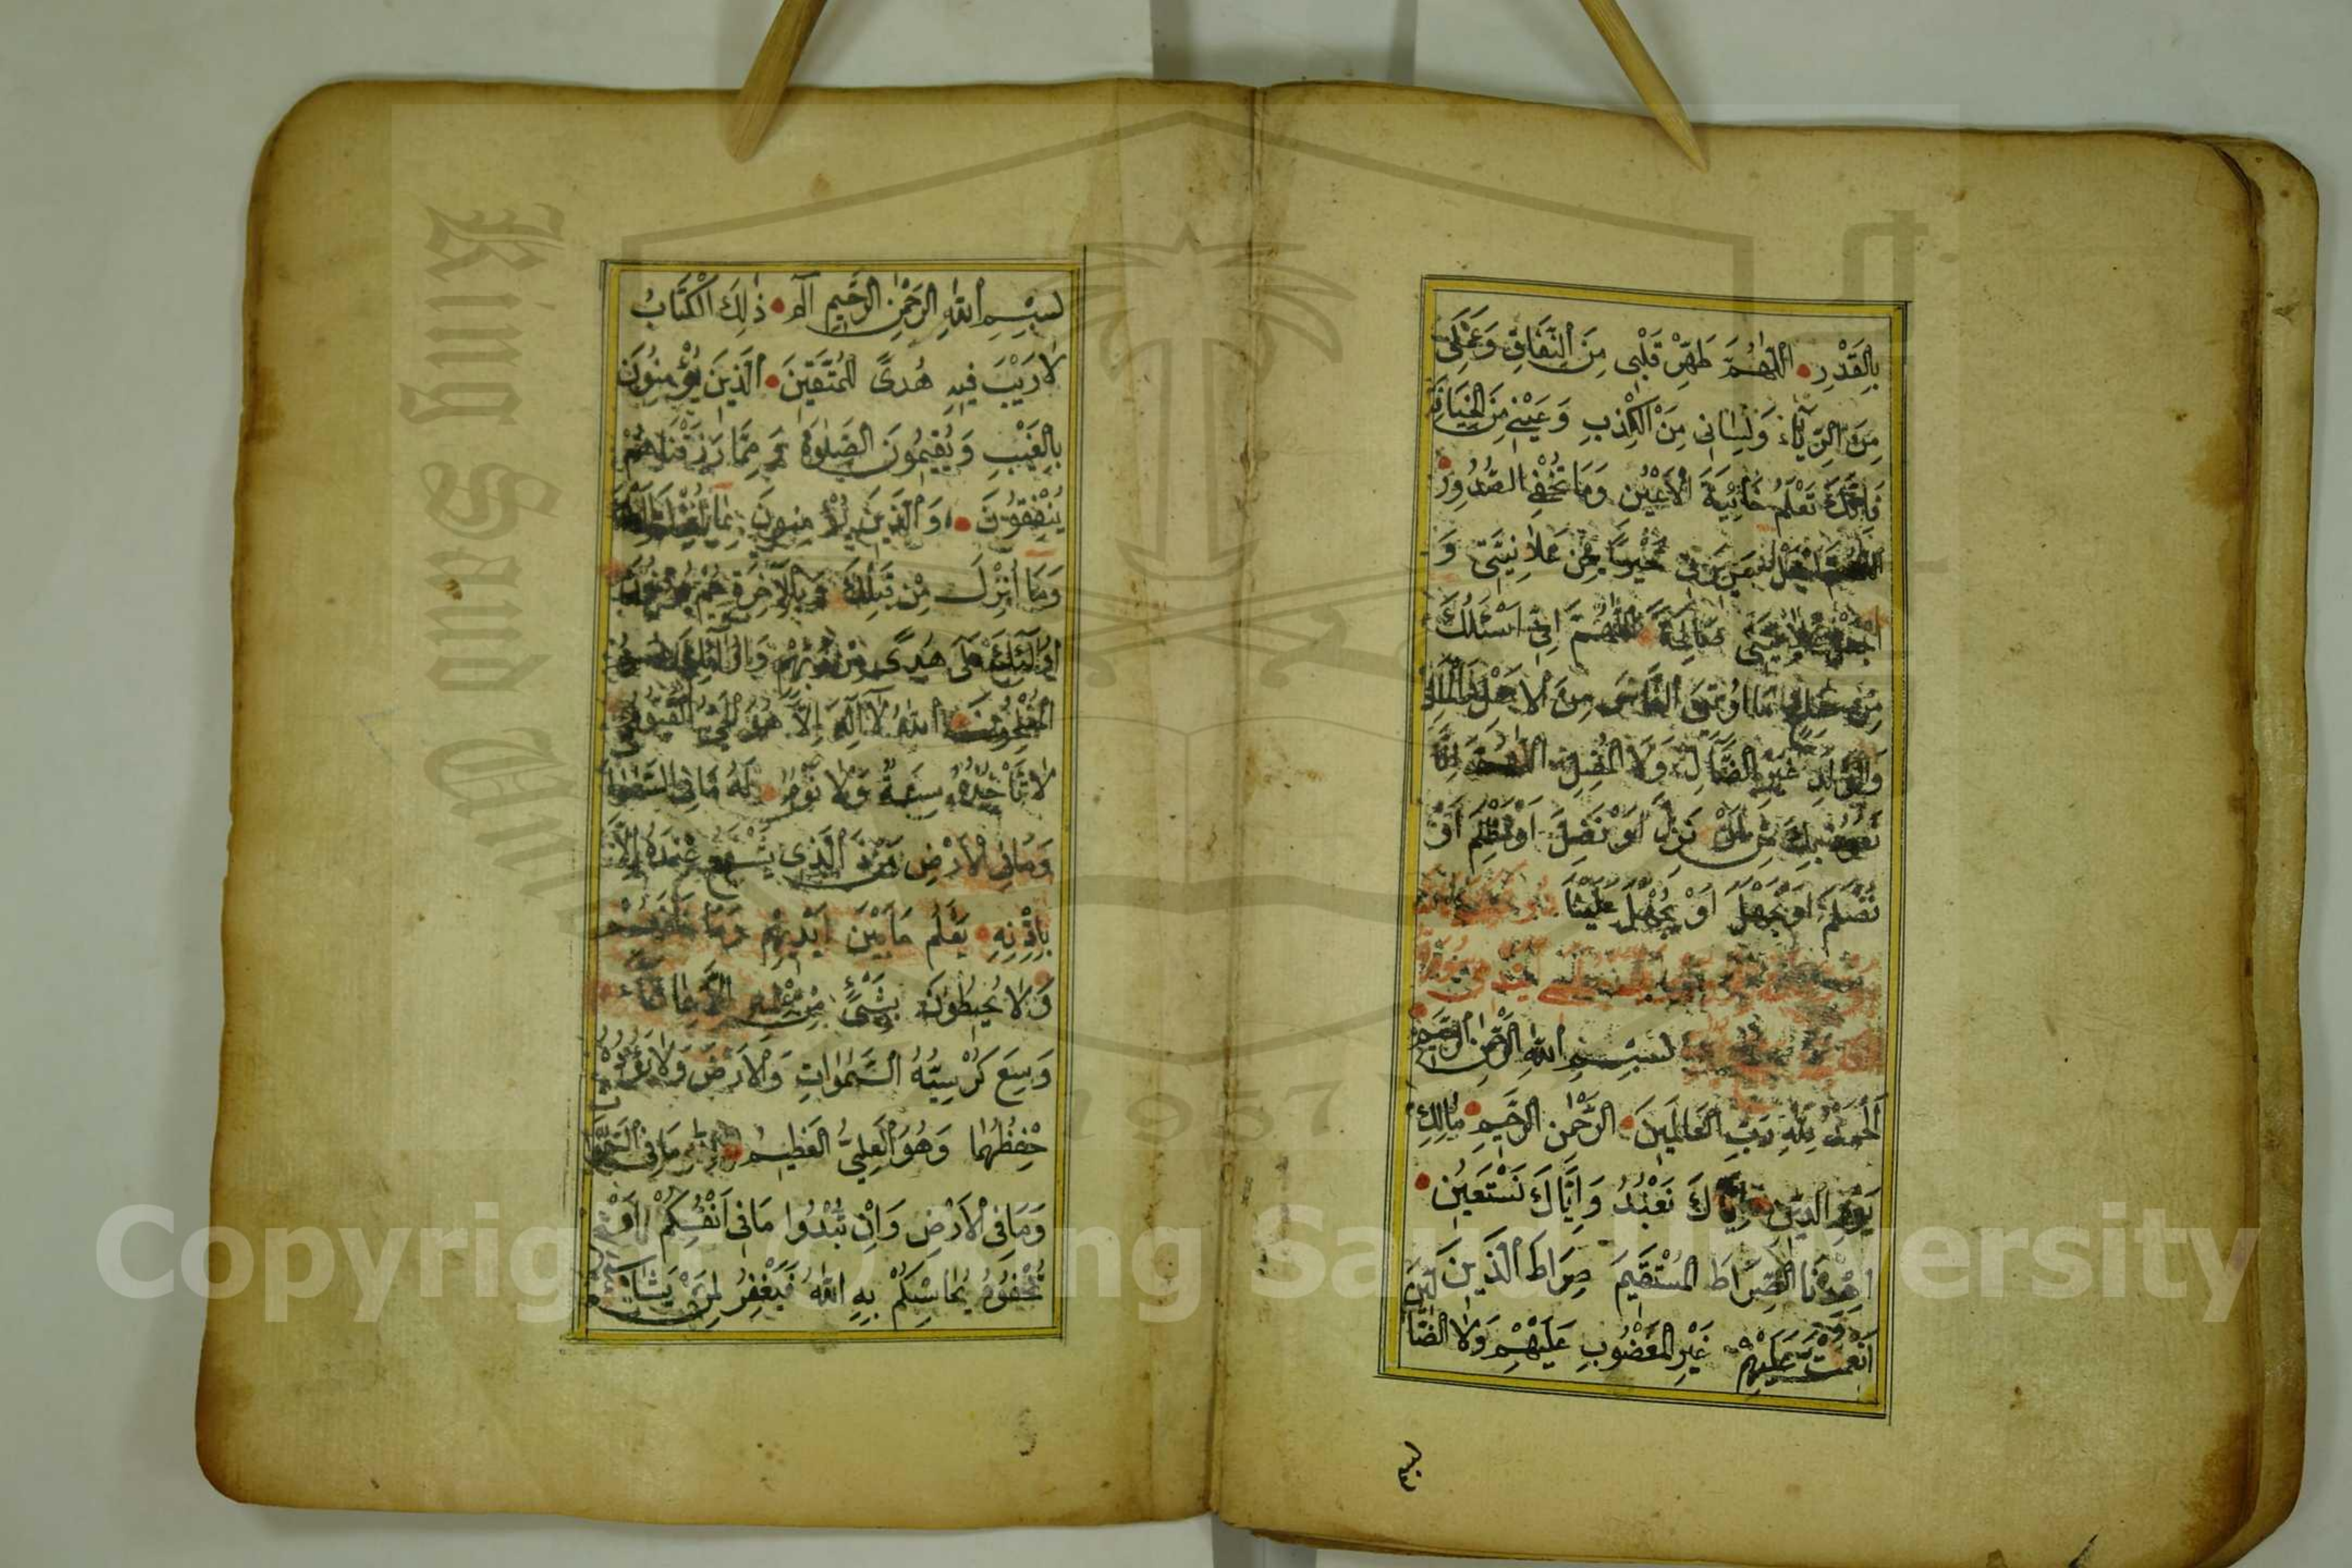 بِالْقَدْرِ اَللّٰهُمَّ طَهِّرْ قَلْبِى مِنَ النِّفَاقِ وَعَمَلِى
مِنَ الرِّيَآءِ وَلِسَانِى مِنَ الْكِذْبِ وَعَيْنِى مِنَ الْخِيَانَةِ
فَاِنَّكَ تَعْلَمُ خَائِنَةَ الْاَعْيُنِ وَمَا تُخْفِى الصُّدُورُ
خَيْرًا مِنْ عَلَانِيَتِى وَ
صَالِحَةً اَللّٰهُمَّ اِنِّى اَسْئَلُكَ
مِنْ مَا تُؤْتِى النَّاسَ مِنَ الْاَهْلِ وَالْمَالِ
وَالْوَلَدِ غَيْرِ الضَّآلِّ وَلَا الْمُضِلِّ اَللّٰهُمَّ اِنَّا
نَعُوذُ بِكَ مِنْ اَنْ نَزِلَّ اَوْ نَضِلَّ اَوْ نَظْلِمَ اَوْ
نُظْلَمَ اَوْ نَجْهَلَ اَوْ يُجْهَلَ عَلَيْنَا
بِسْمِ اللّٰهِ الرَّحْمٰنِ الرَّحِيمِ
اَلْحَمْدُ لِلّٰهِ رَبِّ الْعَالَمِينَ الرَّحْمٰنِ الرَّحِيمِ مَالِكِ
يَوْمِ الدِّينِ اِيَّاكَ نَعْبُدُ وَاِيَّاكَ نَسْتَعِينُ
اِهْدِنَا الصِّرَاطَ الْمُسْتَقِيمَ صِرَاطَ الَّذِينَ
اَنْعَمْتَ عَلَيْهِمْ غَيْرِ الْمَغْضُوبِ عَلَيْهِمْ وَلَا الضَّالِّينَ
بِسْمِ اللّٰهِ الرَّحْمٰنِ الرَّحِيمِ الٓمٓ ذٰلِكَ الْكِتَابُ
لَا رَيْبَ فِيهِ هُدًى لِلْمُتَّقِينَ اَلَّذِينَ يُؤْمِنُونَ
بِالْغَيْبِ وَيُقِيمُونَ الصَّلٰوةَ وَمِمَّا رَزَقْنَاهُمْ
يُنْفِقُونَ وَالَّذِينَ يُؤْمِنُونَ بِمَا اُنْزِلَ اِلَيْكَ
وَمَا اُنْزِلَ مِنْ قَبْلِكَ وَبِالْآخِرَةِ هُمْ يُوقِنُونَ
اُولٰٓئِكَ عَلٰى هُدًى مِنْ رَبِّهِمْ وَاُولٰٓئِكَ هُمُ
الْمُفْلِحُونَ اَللّٰهُ لَآ اِلٰهَ اِلَّا هُوَ الْحَىُّ الْقَيُّومُ
لَا تَأْخُذُهُ سِنَةٌ وَلَا نَوْمٌ لَهُ مَا فِى السَّمٰوَاتِ
وَمَا فِى الْاَرْضِ مَنْ ذَا الَّذِى يَشْفَعُ عِنْدَهُ اِلَّا
بِاِذْنِهِ يَعْلَمُ مَا بَيْنَ اَيْدِيهِمْ وَمَا خَلْفَهُمْ
وَلَا يُحِيطُونَ بِشَىْءٍ مِنْ عِلْمِهِ اِلَّا بِمَا شَآءَ
وَسِعَ كُرْسِيُّهُ السَّمٰوَاتِ وَالْاَرْضَ وَلَا يَؤُدُهُ
حِفْظُهُمَا وَهُوَ الْعَلِىُّ الْعَظِيمُ لِلّٰهِ مَا فِى السَّمٰوَاتِ
وَمَا فِى الْاَرْضِ وَاِنْ تُبْدُوا مَا فِى اَنْفُسِكُمْ اَوْ
تُخْفُوهُ يُحَاسِبْكُمْ بِهِ اللّٰهُ فَيَغْفِرُ لِمَنْ يَشَآءُ
King Saud
1957
Copyright © King Saud University